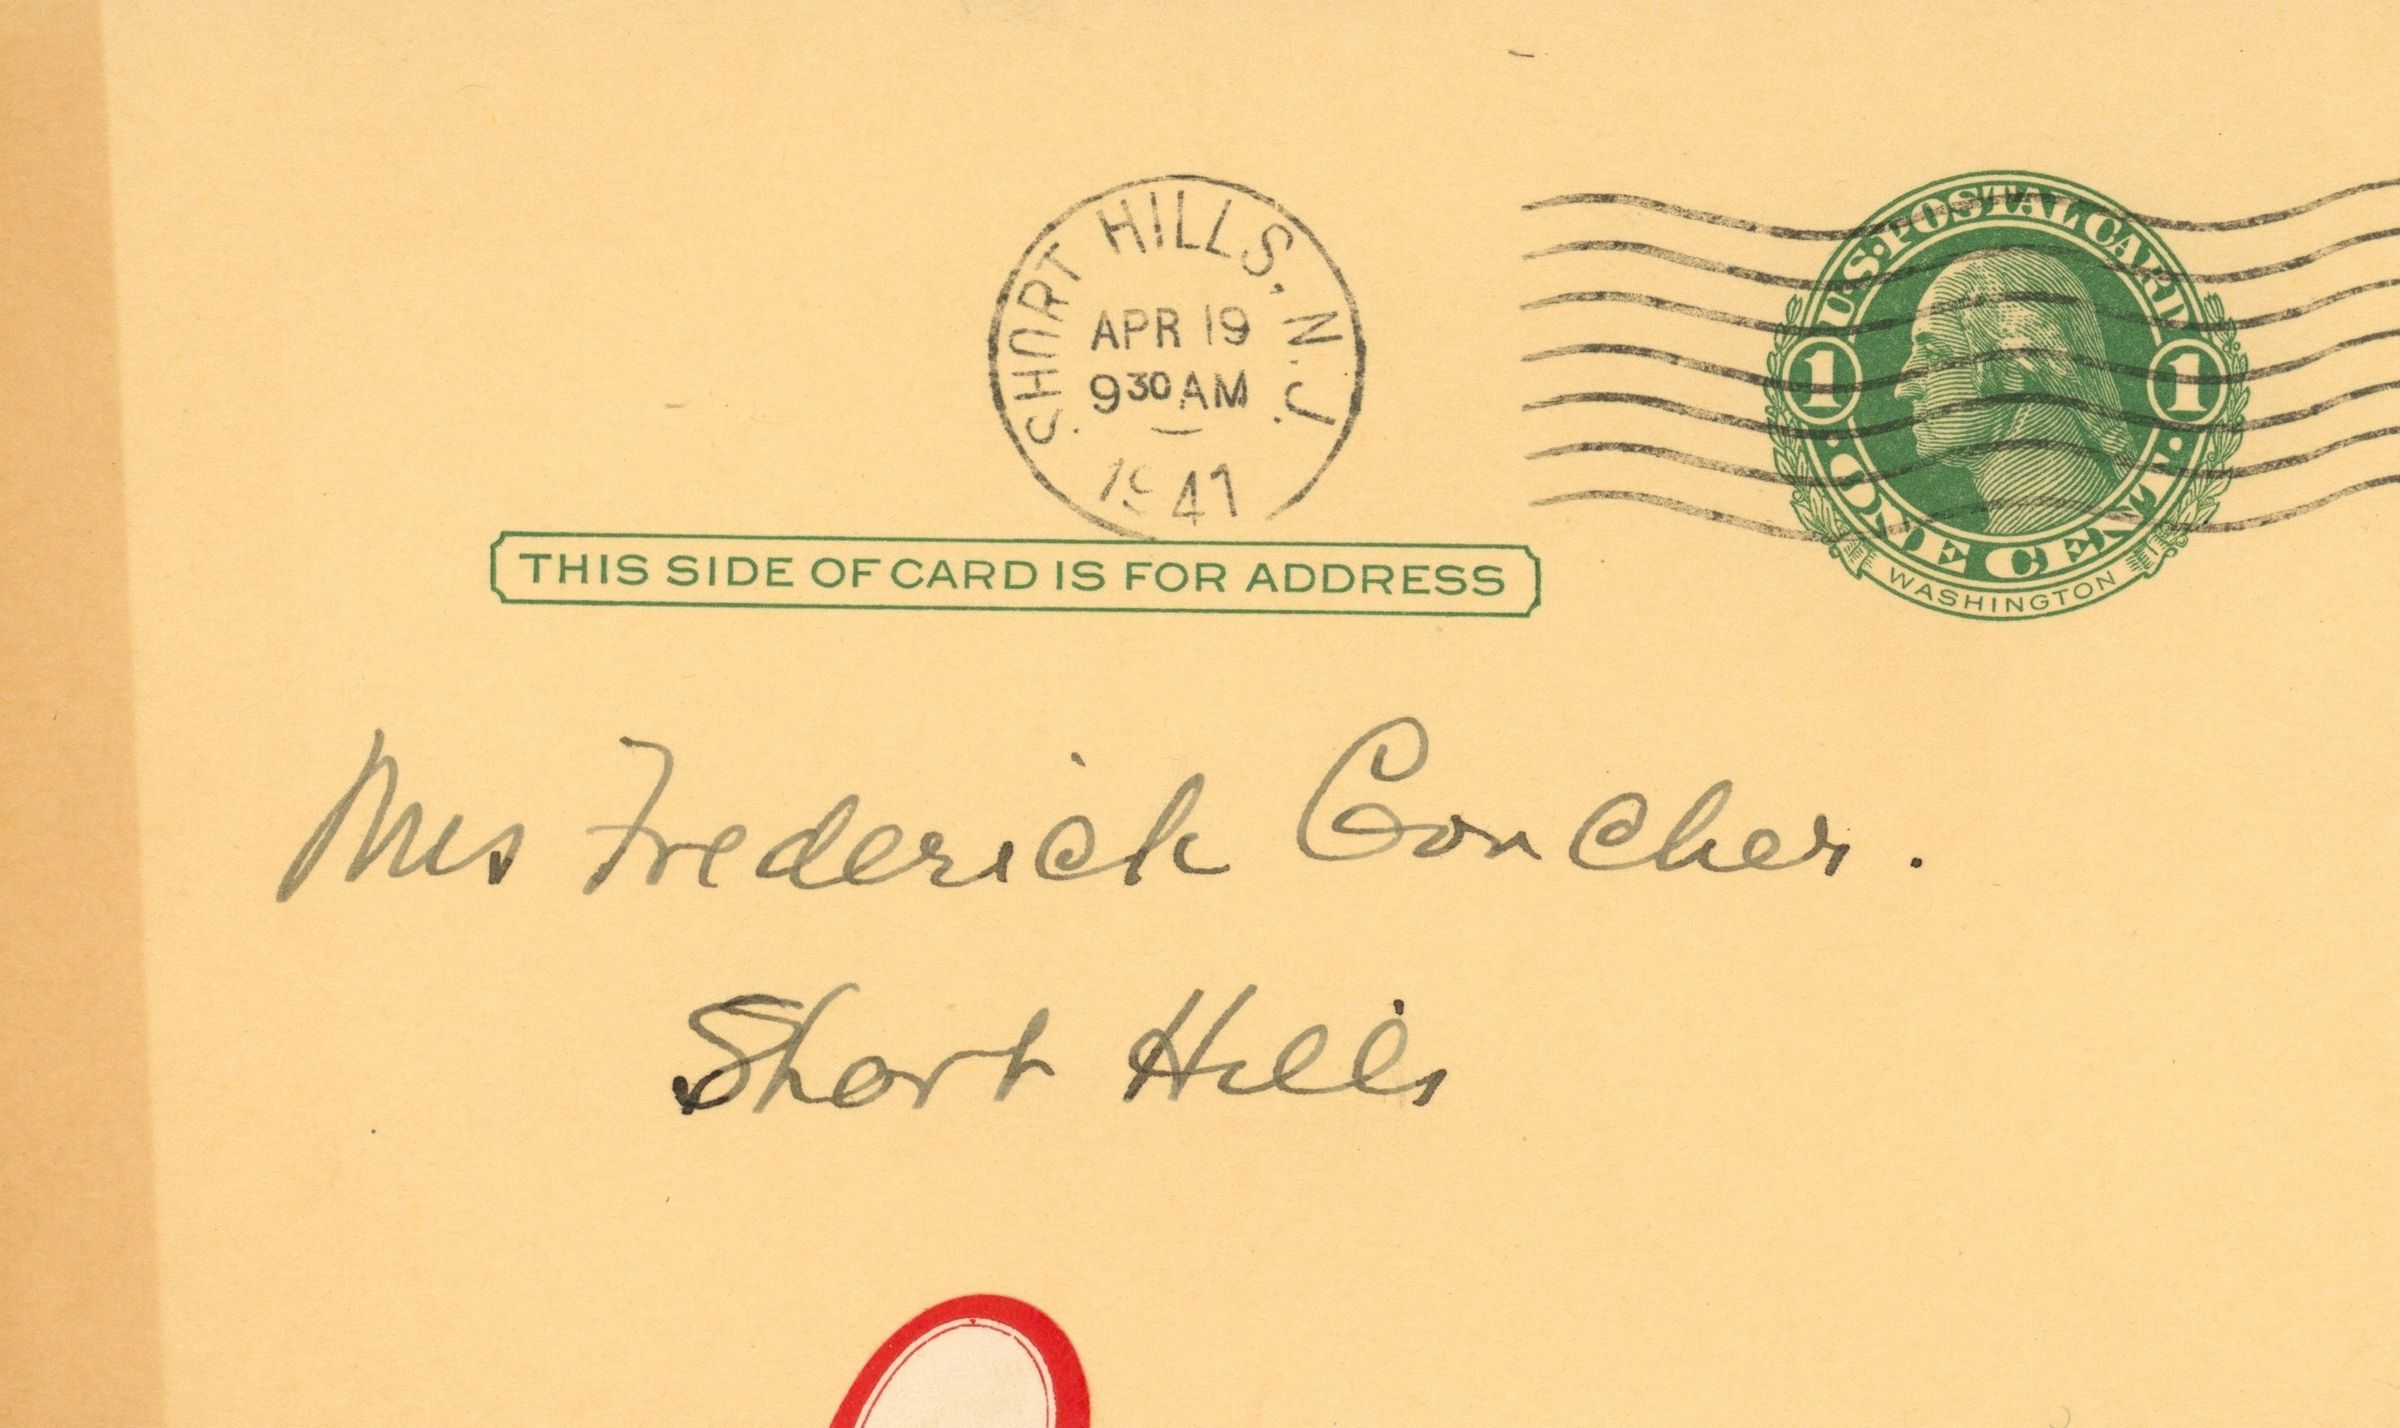 SHORT HILLS, N.J.
APR 19
9 30 AM
1941
U.S. POSTAL CARD
1 1
ONE CENT
WASHINGTON
THIS SIDE OF CARD IS FOR ADDRESS
Mrs Frederick Goucher.
Short Hills